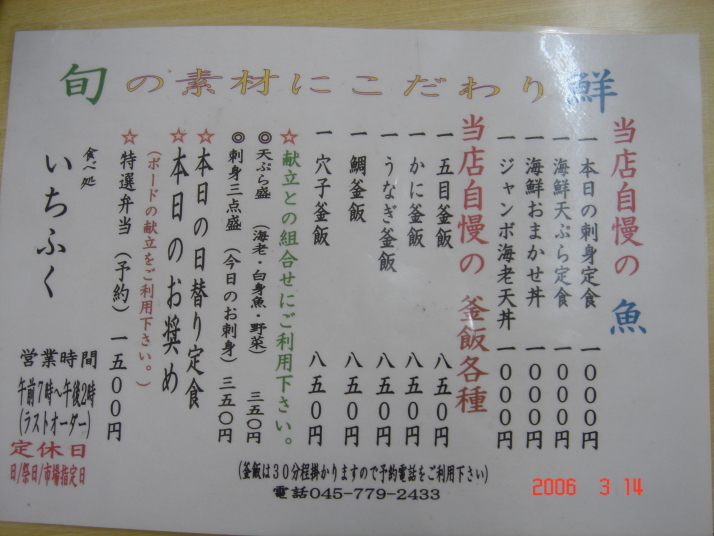 旬の素材にこだわり鮮
当店自慢の 魚
一 本日の刺身定食 一000円
一 海鮮天ぷら定食 一000円
一 海鮮おまかせ丼 一000円
一 ジャンボ海老天丼 一000円
当店自慢の 釜飯各種
一 五目釜飯 八五0円
一 かに釜飯 八五0円
一 うなぎ釜飯 八五0円
一 鯛釜飯 八五0円
一 穴子釜飯 八五0円
☆献立との組合せにご利用下さい。
◎天ぷら盛 (海老・白身魚・野菜) 三五0円
◎刺身三点盛 (今日のお刺身) 三五0円
☆本日の日替り定食
☆本日のお奨め
(ボードの献立をご利用下さい。)
☆特選弁当(予約) 一五00円
食べ処
いちふく
営業時間
午前7時~午後2時
(ラストオーダー)
定休日
日/祭日/市場指定日
(釜飯は30分程掛かりますので予約電話をご利用下さい)
電話045-779-2433
2006 3 14